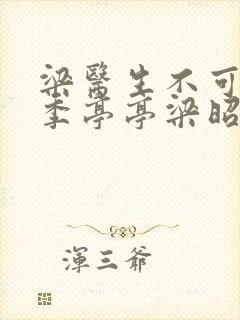 梁醫生不可
季亭亭梁昭
渾三爺